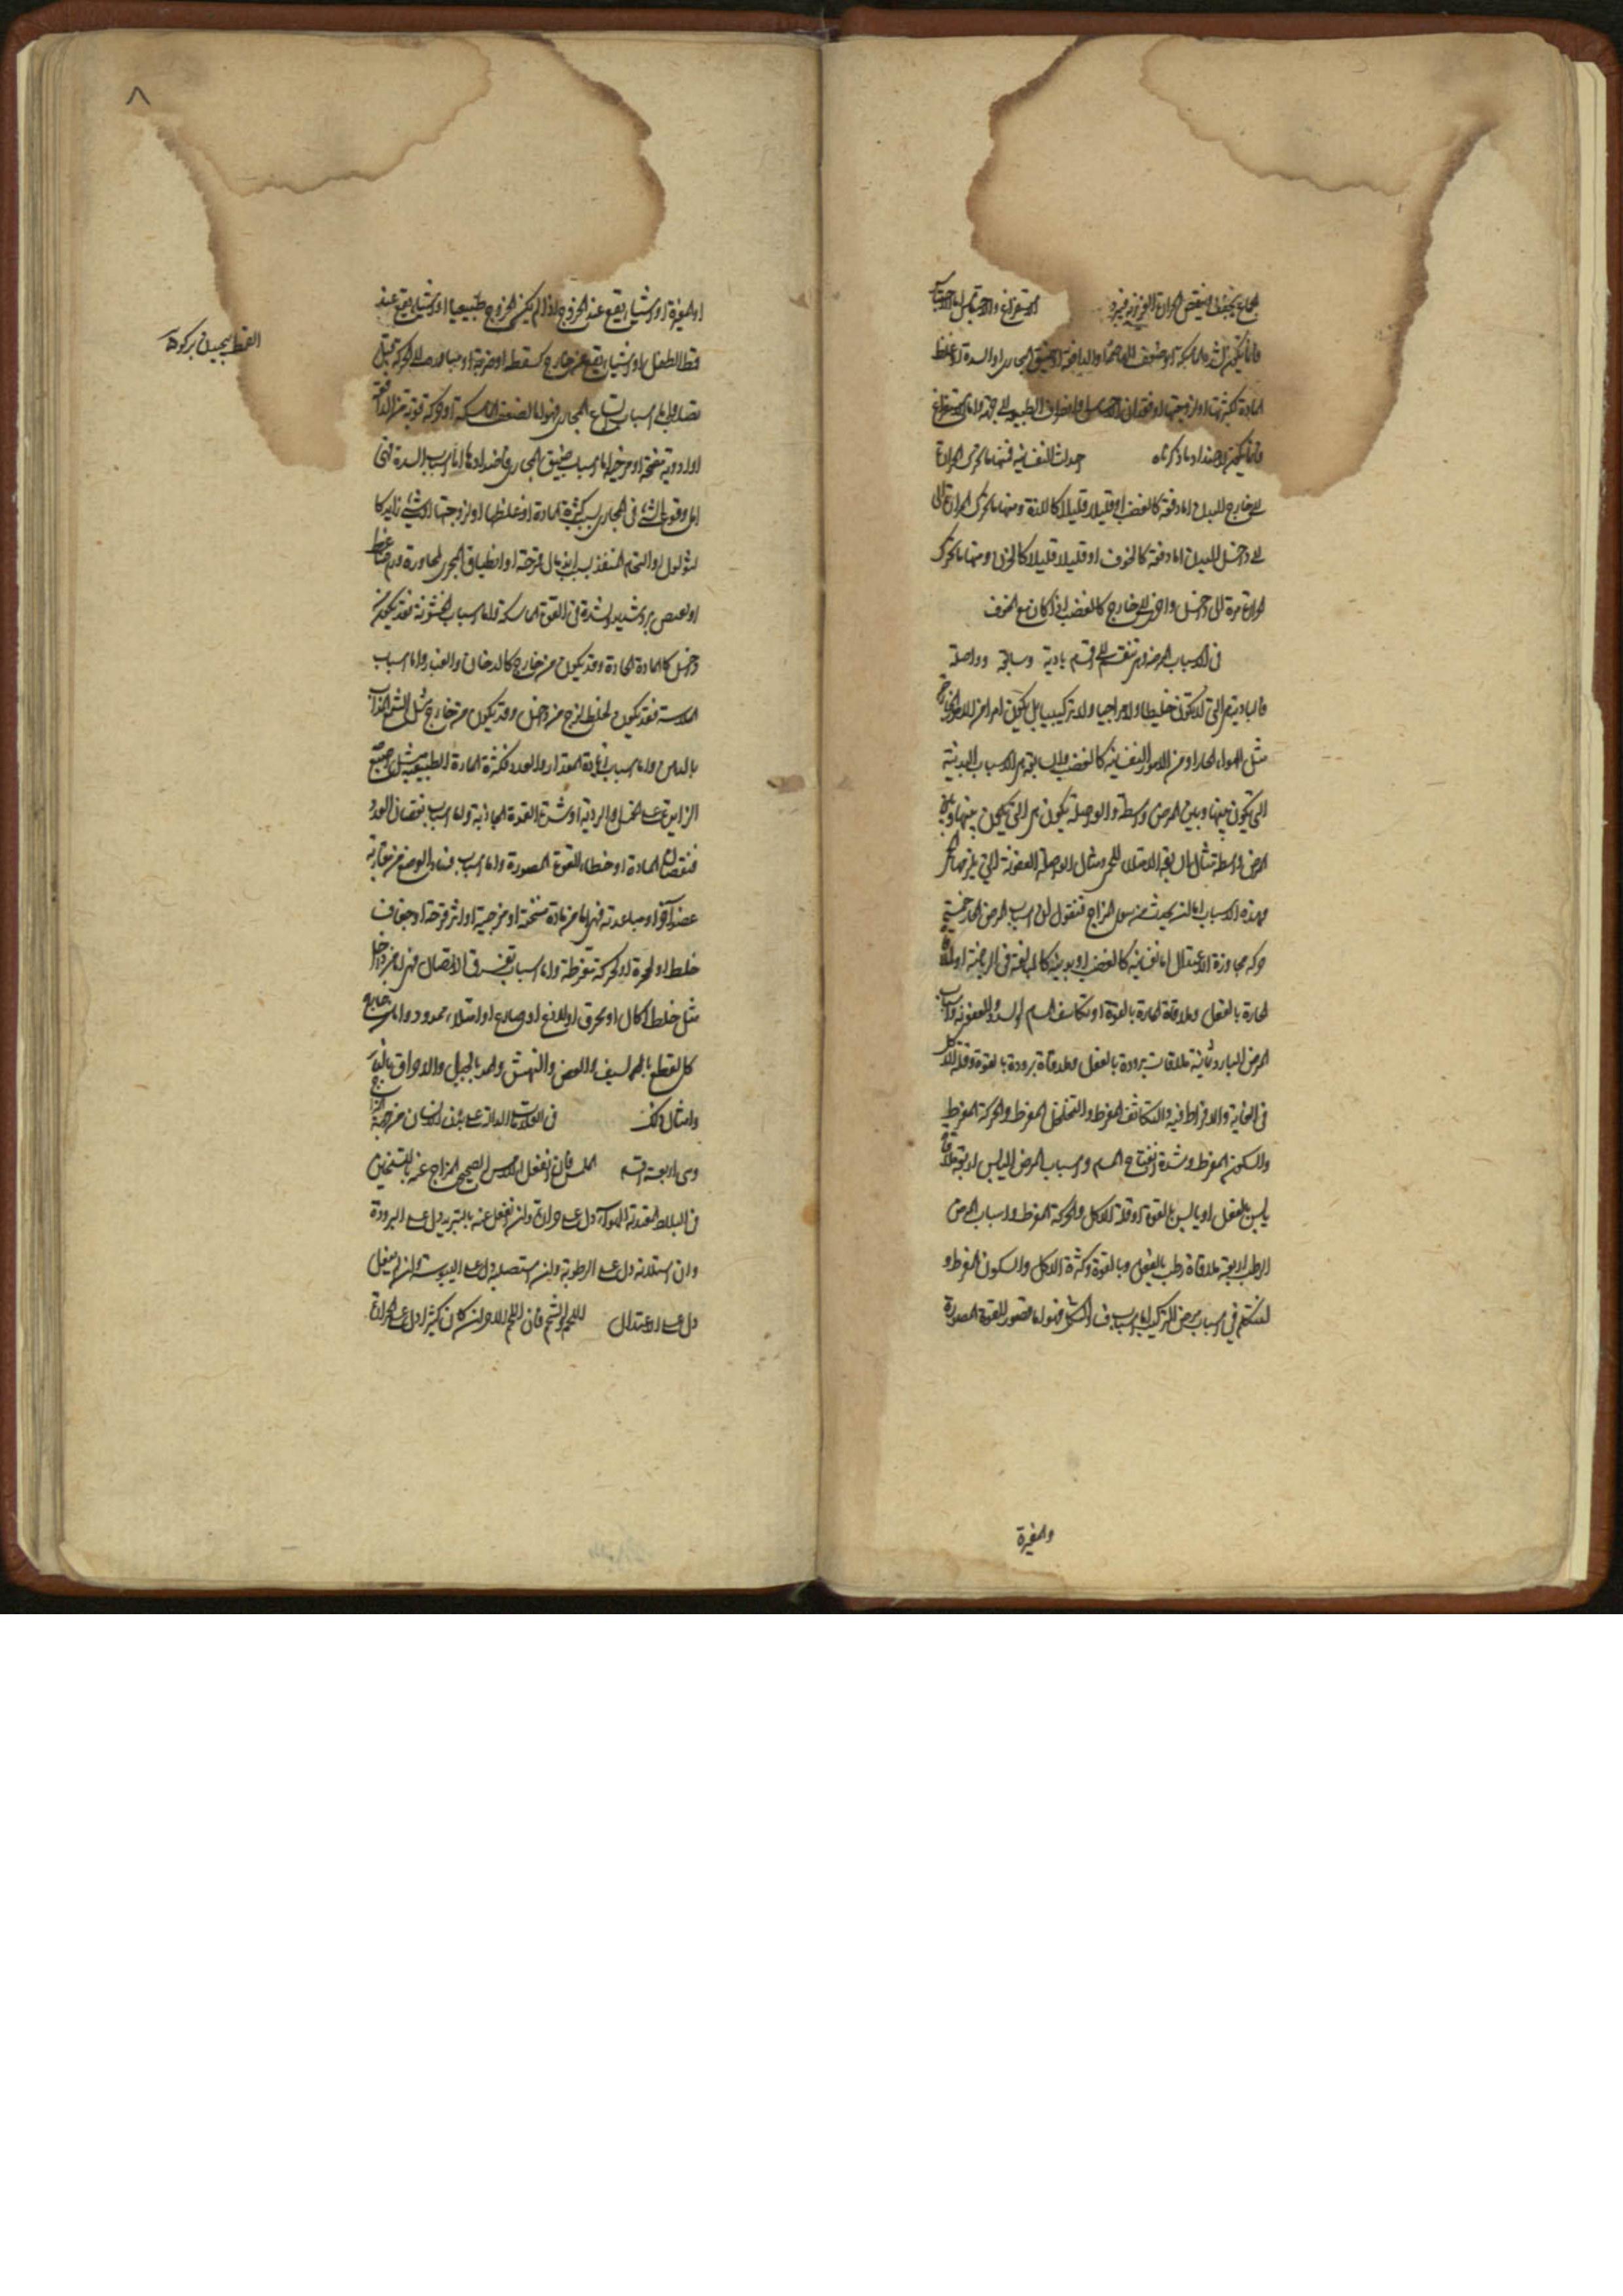 الجماع يجفف وينقص الحرارة الغريزية فيبرد الاستفراغ والاحتباس اما الاحتباس
فانما يكون لشدة الماسكة او لضعف الهاضمة والدافعة او لضيق المجارى او السدة او غلظ
المادة او كثرتها او لزوجتها او فقدان الاحساس وانصراف الطبيعة الى جهة واما الاستفراغ
فانما يكون لاضداد ما ذكرناه احداث النفسانية فمنها ما يحرك الحرارة
الى خارج البدن اما دفعة كالغضب او قليلا قليلا كاللذة ومنها ما يحرك الحرارة الى
الى داخل البدن اما دفعة كالخوف او قليلا قليلا كالحزن ومنها ما يحرك
الحرارة مرة الى داخل واخرى الى خارج كالغضب اذا كان مع الخوف
فى الاسباب الممرضة وهى تنقسم الى اقسام بادية وسابقة وواصلة
فالبادية هى التى لا تكون خلطيا ولا مزاجيا ولا تركيبيا بل يكون اما من الامور الخارجة
مثل الهواء الحار او من الامور النفسانية كالغضب والسابقة هى الاسباب البدنية
التى تكون بينها وبين المرض واسطة والواصلة يكون هى التى يكون بينها وبين
المرض واسطة مثال السابقة الامتلاء للحمى ومثال الواصلة العفونة التى يلزمها
فهذه الاسباب اما ان يحدث عنه سوء المزاج فنقول ان اسباب المرض الحار خمسة
حركة مجاوزة الاعتدال اما نفسانية كالغضب او بدنية كالمبالغة فى الرياضة او ملاقاة
الحارة بالفعل وملاقاة الحارة بالقوة او تكاثف المسام او السدد والعفونة واسباب
المرض البارد ثمانية ملاقات برودة بالفعل وملاقاة برودة بالقوة وقلة الاكل
فى الغاية والافراط فيه والتكاثف المفرط والتخلخل المفرط والحركة المفرط
والسكون المفرط وشدة انفتاح المسام واسباب المرض اليابس اربعة ملاقاة
يابس بالفعل او يابس بالقوة او قلة الاكل والحركة المفرط واسباب المرض
الرطب اربعة ملاقاة رطب بالفعل وبالقوة وكثرة الاكل والسكون المفرط و
لنتكلم فى اسباب مرض التركيب اما اسباب فساد الشكل فهو اما قصور للقوة المصورة
والمغيرة
٨
او المغيرة او اشياء يقع عند الخروج اذا لم يكن الخروج طبيعيا او اشياء يقع عند
قماط الطفل او اشياء يقع من خارج كسقطة او ضربة او مبادرة الى الحركة قبل
القماط بيجيدن بر كودك
تصلب واما اسباب اتساع المجارى فهو اما لضعف الماسكة او حركة قوية من الدافعة
او ادوية مفتحة او مرخية اما اسباب ضيق المجارى فاضدادها اما اسباب السدة فهى
اما وقوع الشئ فى المجارى بسبب كثرة المادة او غلظها او لزوجتها او شئ زايد كا
لثولول او التحام المنفذ بسبب اندمال قرحة او انطباق المجرى لمجاورة ورم ضاغط
او لقبض برد شديد او شدة فى القوة الماسكة واما اسباب الخشونة فقد يكون من
داخل كالمادة الحادة وقد يكون من خارج كالدخان والغبار واما اسباب
الملاسة فقد يكون لخلط لزج من داخل وقد يكون من خارج مثل الشمع المذاب
بالدهن واما اسباب زيادة المقدار والعدد فكثرة المادة الطبيعية مثل اصبع
الزايدة على الخمسة والردية او شدة القوة الجاذبة واما اسباب نقصان العدد
فنقصان المادة او خطاء القوة المصورة واما اسباب فساد الوضع من مقاربة
عضو آخر او مباعدته فهى اما من مادة مشنجة او مرخية او اثر قرحة او جفاف
خلط او لحركة مفرطة واما اسباب تفرق الاتصال فهى اما من داخل
مثل خلط اكال او محرق او لاذع او صادع او امتلاء ممدد واما من خارج
كالقطع بالسيف والعض والنهش والمد بالحبل والاحراق بالنار
وامثال ذلك فى العلامات الدالة على بدن الانسان من جهة المزاج
وهى اربعة اقسام الملمس فان انفعل اللامس الصحيح المزاج عنه بالتسخين
فى البلاد المعتدلة الهواء دل على حرارة وان انفعل عنه بالتبريد دل على البرودة
وان استلانه دل على الرطوبة وان استصلبه دل على اليبوسة وان لم ينفعل
دل على الاعتدال اللحم والشحم فان اللحم الاحمر ان كان كثيرا دل على الحرارة